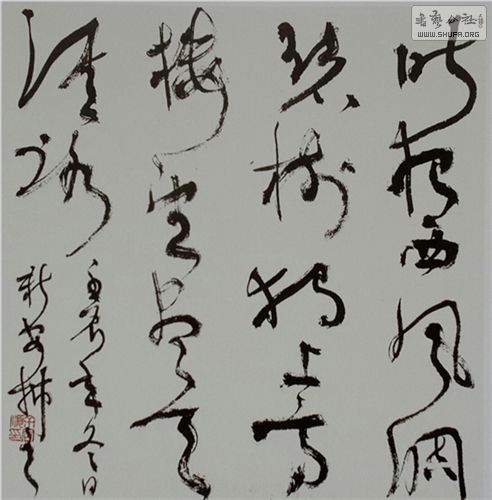 书艺公社
WWW.SHUFA.ORG
昨夜西风凋
碧树独上高
楼望尽天
涯路
壬辰年冬日
新安